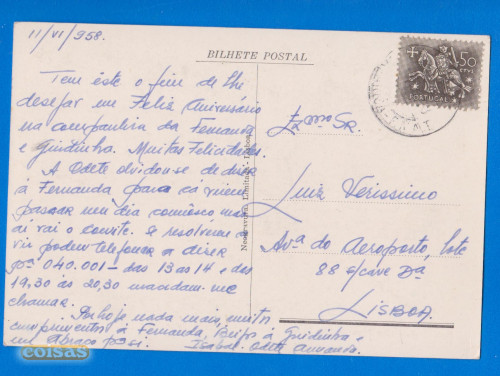 11/VI/958.
BILHETE POSTAL
Tem este o fim de lhe
desejar um Feliz Aniversário
na companhia da Fernanda
e Guidinha. Muitas Felicidades.
A Odete de dizer
á Fernanda para cá virem
passar um dia comnosco mas
ai vai o convite. Se resolverem
vir podem telefonar a dizer
pª 040.001 - das 13 ás 14 e das
19,30 ás 20,30 mandam-me
chamar.
Por hoje nada mais, muitos
cumprimentos á Fernanda, Beijos á Guidinha e
um abraço
Isabel Odete Armando.
Exmo Sr.
Luiz Verissimo
Avª do Aeroporto, lote
88 s/cave Dª
LISBOA.
50
PORTUGAL
coisas